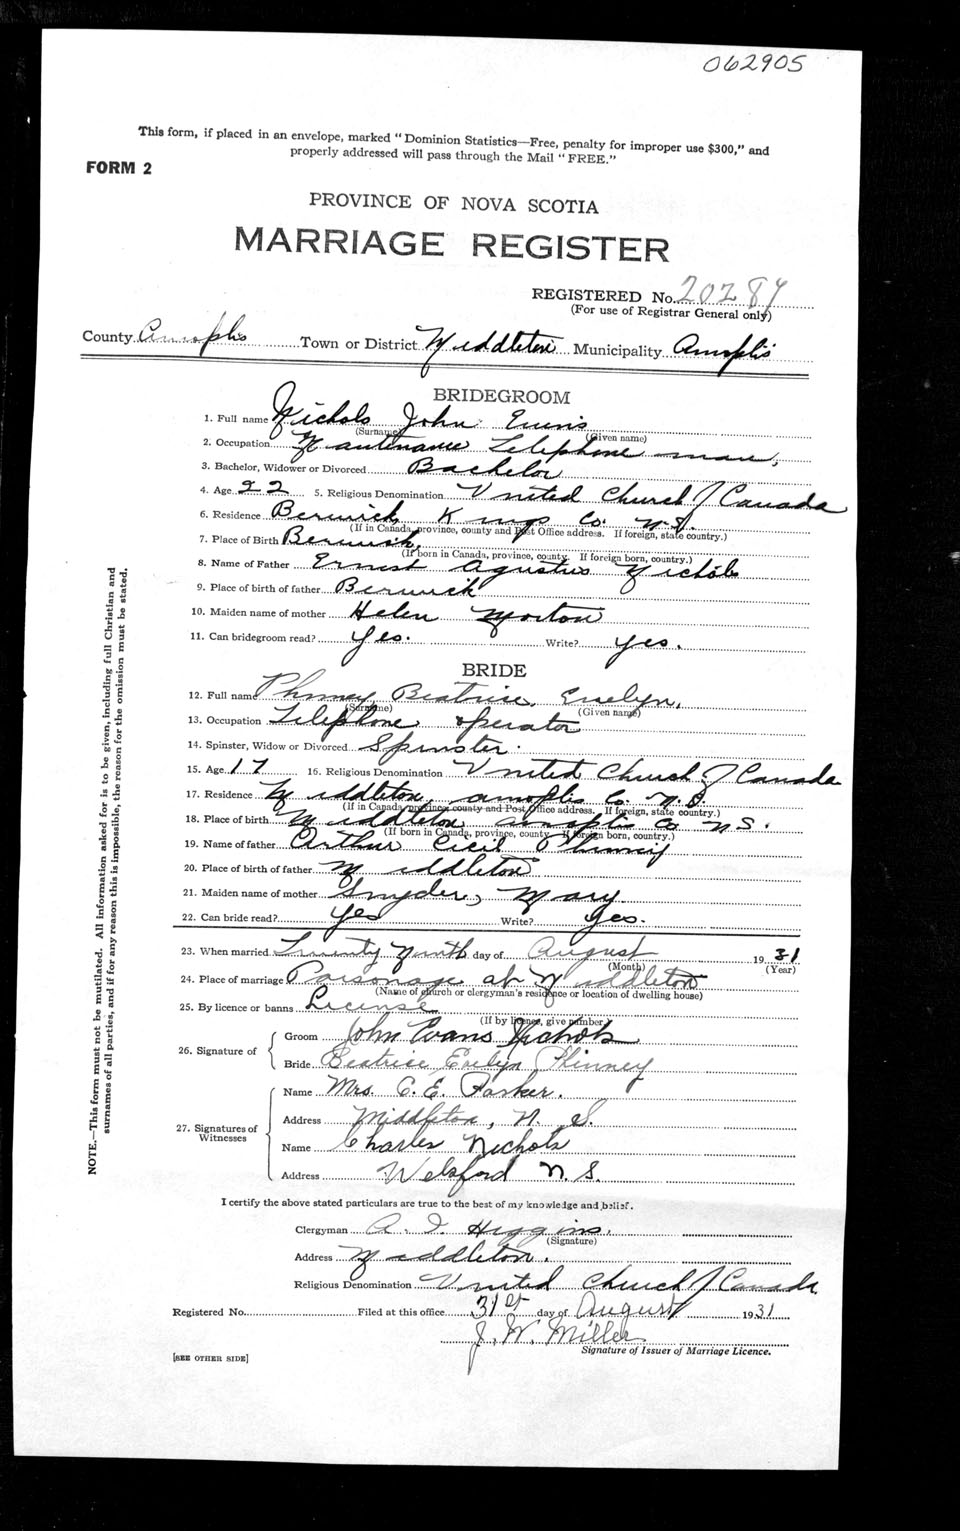 062905
This form, if placed in an envelope, marked "Dominion Statistics—Free, penalty for improper use $300," and
properly addressed will pass through the Mail "FREE."
FORM 2
PROVINCE OF NOVA SCOTIA
MARRIAGE REGISTER
REGISTERED No. 20289
(For use of Registrar General only)
County Annoplis Town or District Middleton Municipality Annoplis
BRIDEGROOM
1. Full name Nichols John Evins
(Surname) (Given name)
2. Occupation Maintenance Telephone man,
3. Bachelor, Widower or Divorced Bachelor
4. Age 22 5. Religious Denomination United Church of Canada
6. Residence Berwick, Kings Co. N.S.
(If in Canada, province, county and Post Office address. If foreign, state country.)
7. Place of Birth Berwick,
(If born in Canada, province, county. If foreign born, country.)
8. Name of Father Ernest Agustus Nichols
9. Place of birth of father Berwick
10. Maiden name of mother Helen Morton
11. Can bridegroom read? Yes. Write? Yes.
BRIDE
12. Full name Phinney Beatrice Evelyn,
(Surname) (Given name)
13. Occupation Telephone operator
14. Spinster, Widow or Divorced Spinster.
15. Age 17 16. Religious Denomination United Church of Canada
17. Residence Middleton, Annoplis Co. N.S.
(If in Canada, province, county and Post Office address. If foreign, state country.)
18. Place of birth Middleton Annoplis Co N S.
(If born in Canada, province, county. If foreign born, country.)
19. Name of father Arthur Cicil Phinney
20. Place of birth of father Middleton
21. Maiden name of mother Snyder, Mary
22. Can bride read? Yes Write? Yes.
23. When married Twenty Ninth day of August 1931
(Month) (Year)
24. Place of marriage Parsonage at Middleton
(Name of church or clergyman's residence or location of dwelling house)
25. By licence or banns License
(If by license, give number)
26. Signature of Groom John Evans Nichols
Bride Beatrice Evelyn Phinney
27. Signatures of Witnesses Name Mrs. C. E. Parker.
Address Middleton, N. S.
Name Charles Nichols
Address Welsford N. S.
I certify the above stated particulars are true to the best of my knowledge and belief.
Clergyman A. I. Higgins.
(Signature)
Address Middleton.
Religious Denomination United Church of Canada
Registered No. Filed at this office 31st day of August 1931
J. W. Miller
Signature of Issuer of Marriage Licence.
[SEE OTHER SIDE]
NOTE.—This form must not be mutilated. All information asked for is to be given, including full Christian and
surnames of all parties, and if for any reason this is impossible, the reason for the omission must be stated.